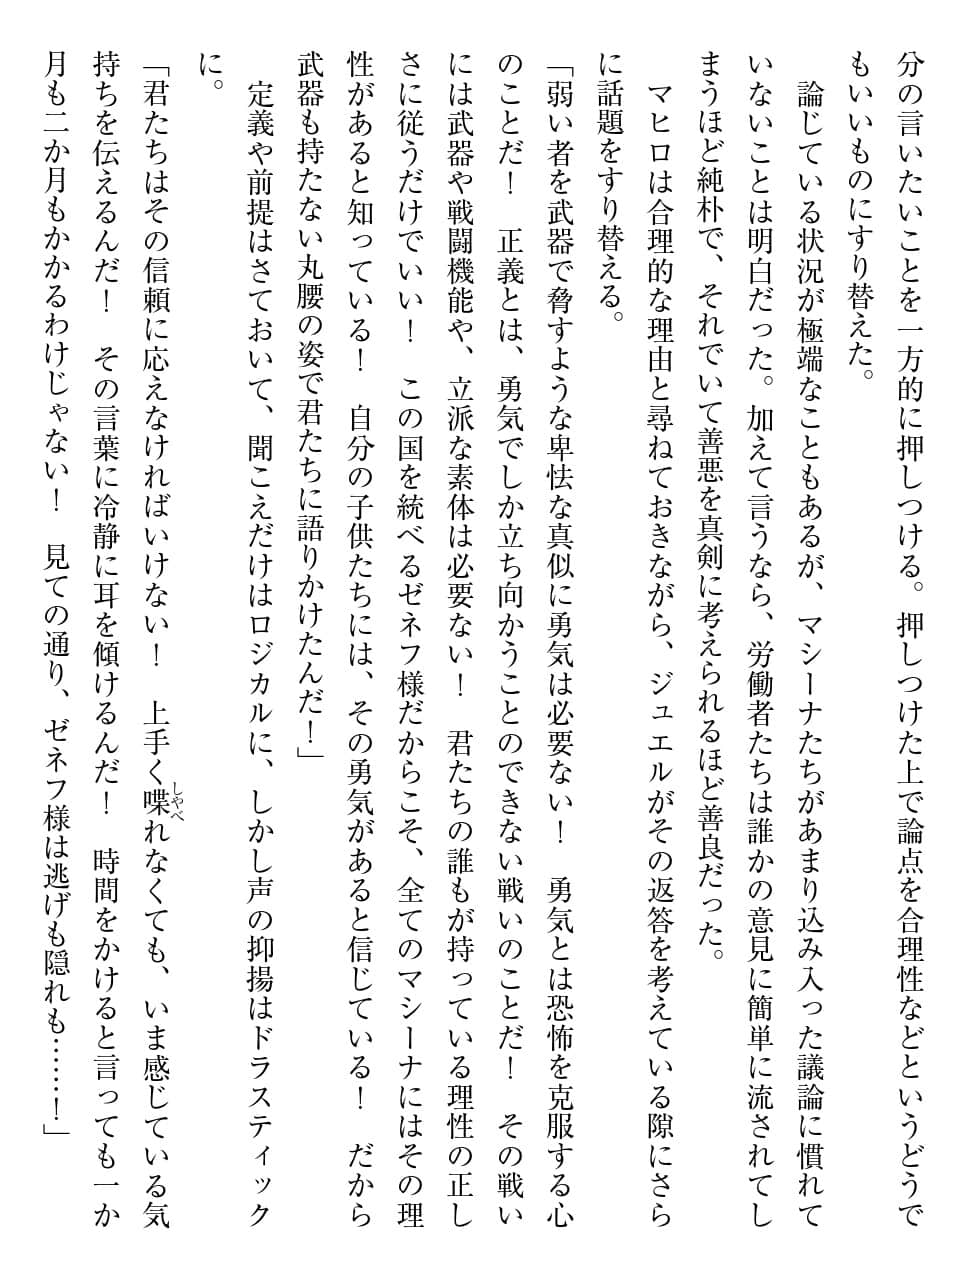 分の言いたいことを一方的に押しつける。押しつけた上で論点を合理性などというどうで
もいいものにすり替えた。
　論じている状況が極端なこともあるが、マシーナたちがあまり込み入った議論に慣れて
いないことは明白だった。加えて言うなら、労働者たちは誰かの意見に簡単に流されてし
まうほど純朴で、それでいて善悪を真剣に考えられるほど善良だった。
　マヒロは合理的な理由と尋ねておきながら、ジュエルがその返答を考えている隙にさら
に話題をすり替える。
「弱い者を武器で脅すような卑怯な真似に勇気は必要ない！　勇気とは恐怖を克服する心
のことだ！　正義とは、勇気でしか立ち向かうことのできない戦いのことだ！　その戦い
には武器や戦闘機能や、立派な素体は必要ない！　君たちの誰もが持っている理性の正し
さに従うだけでいい！　この国を統べるゼネフ様だからこそ、全てのマシーナにはその理
性があると知っている！　自分の子供たちには、その勇気があると信じている！　だから
武器も持たない丸腰の姿で君たちに語りかけたんだ！」
　定義や前提はさておいて、聞こえだけはロジカルに、しかし声の抑揚はドラスティック
に。
「君たちはその信頼に応えなければいけない！　上手く喋れなくても、いま感じている気
しやべ
持ちを伝えるんだ！　その言葉に冷静に耳を傾けるんだ！　時間をかけると言っても一か
月も二か月もかかるわけじゃない！　見ての通り、ゼネフ様は逃げも隠れも……！」